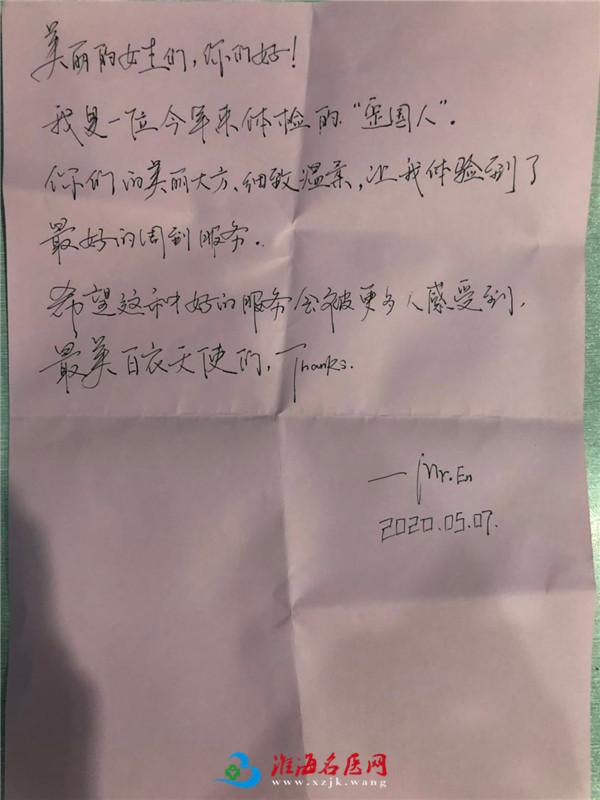 美丽的女生们，你们好！
我是一位今年来体检的“歪国人”．
你们的美丽大方、细致温柔，让我体验到了
最好的周到服务．
希望这种好的服务会被更多人感受到，
最美白衣天使们，Thanks.
—Mr.En
2020.05.07.
淮海名医网
www.xzjk.wang